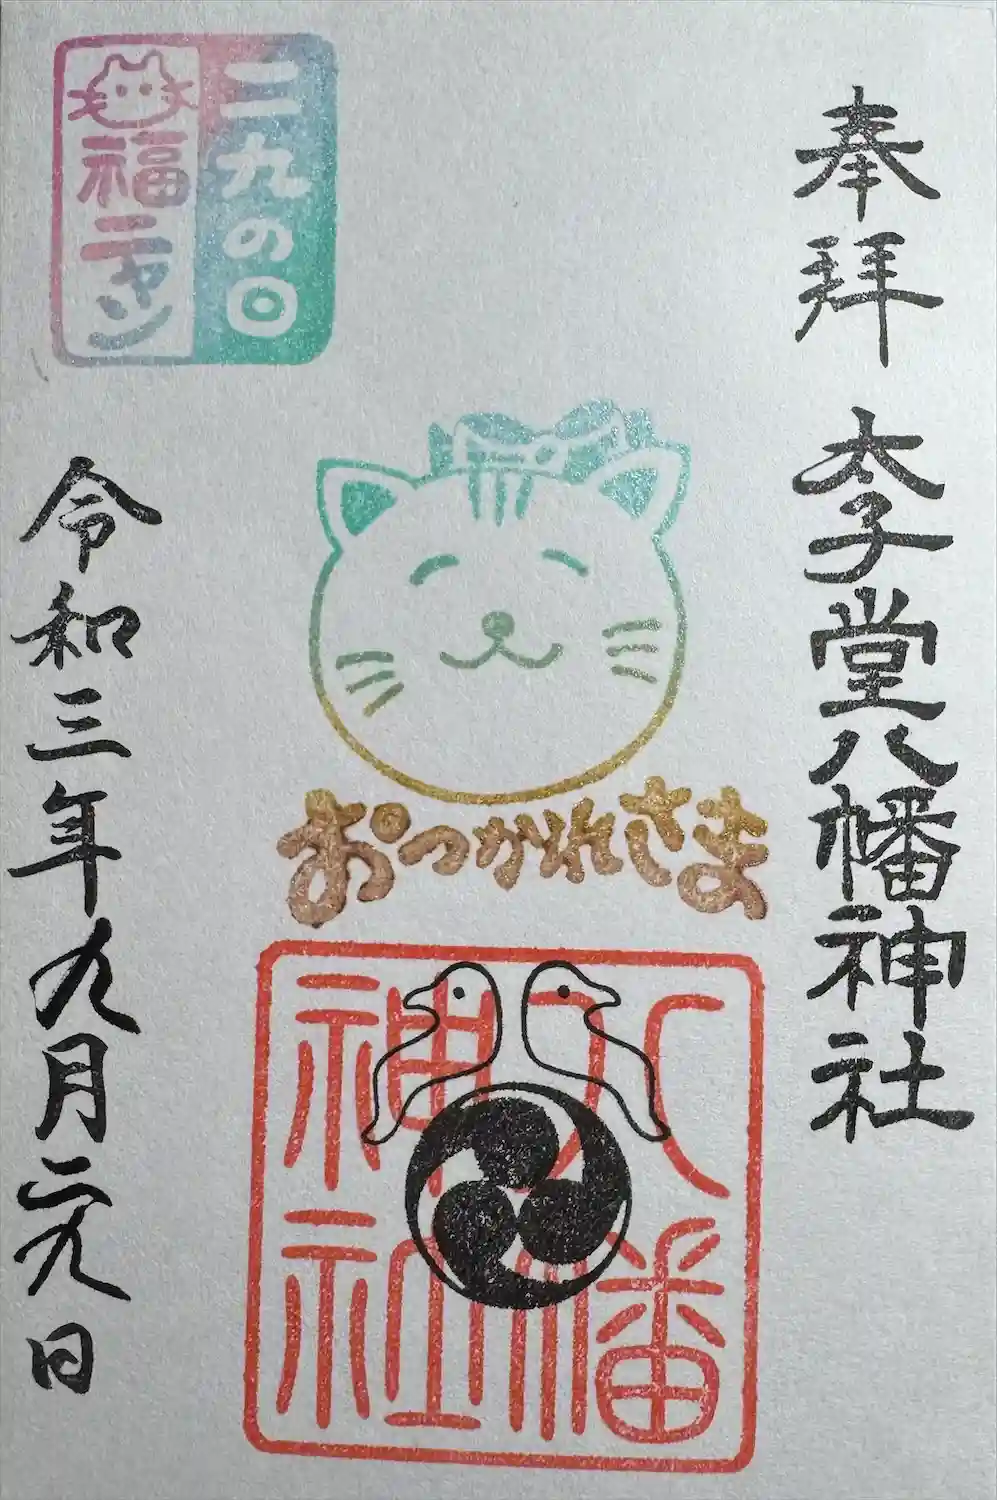 奉拝
太子堂八幡神社
二九の日
福ニャン
おつかれさま
八幡
神社
令和三年九月二九日